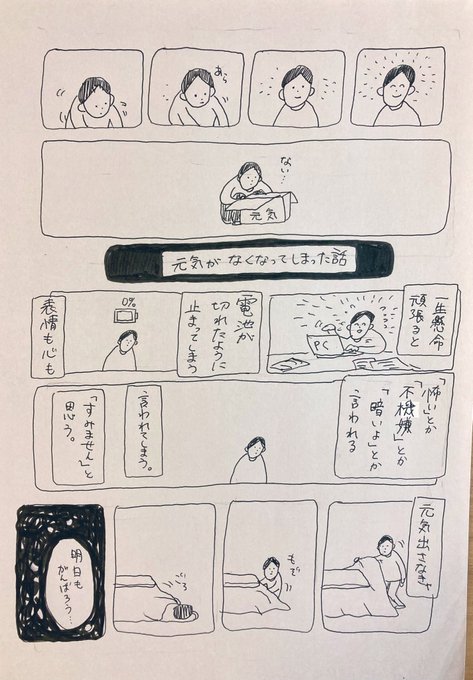 あら
ない…
元気
元気がなくなってしまった話
一生懸命
頑張ると
PC
電池が
切れたように
止まってしまう
0%
表情も心も
「怖い」とか
「不機嫌」とか
「暗いよ」とか
言われる
言われてしまう。
「すみません」と
思う。
元気出さなきゃ
もぞ
明日も
がんばろう…